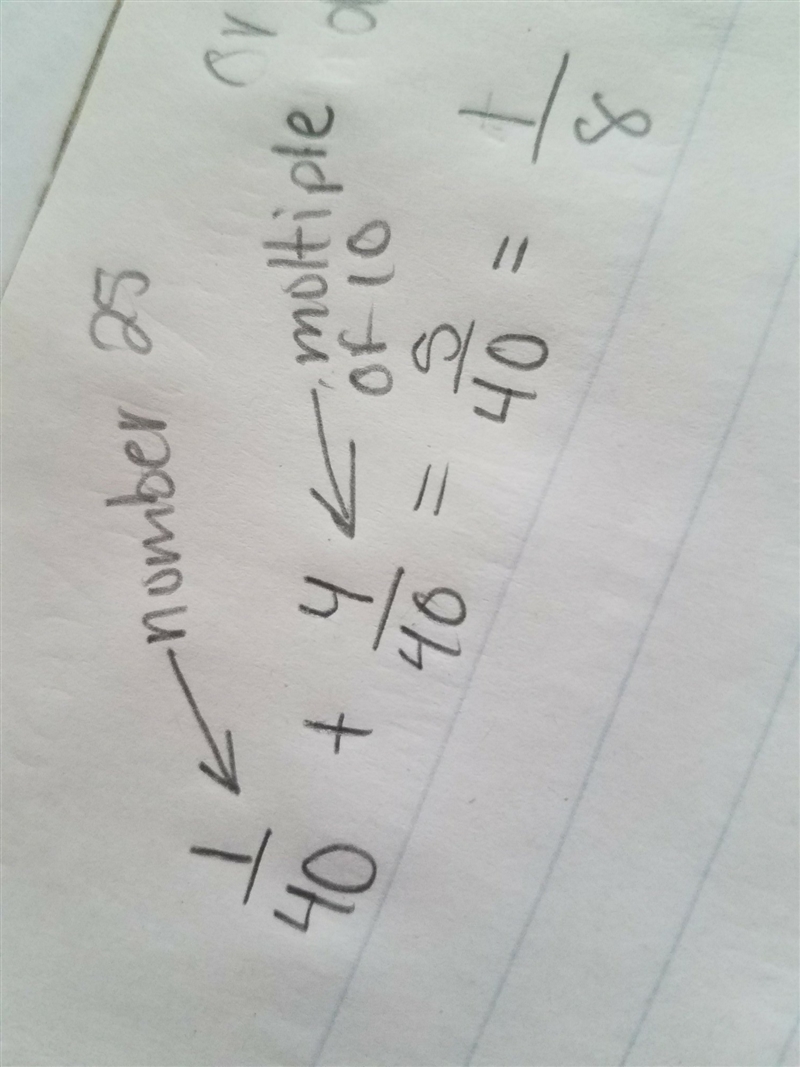 number 25
multiple or
of 10
1/40 + 4/40 = 5/40 = 1/8